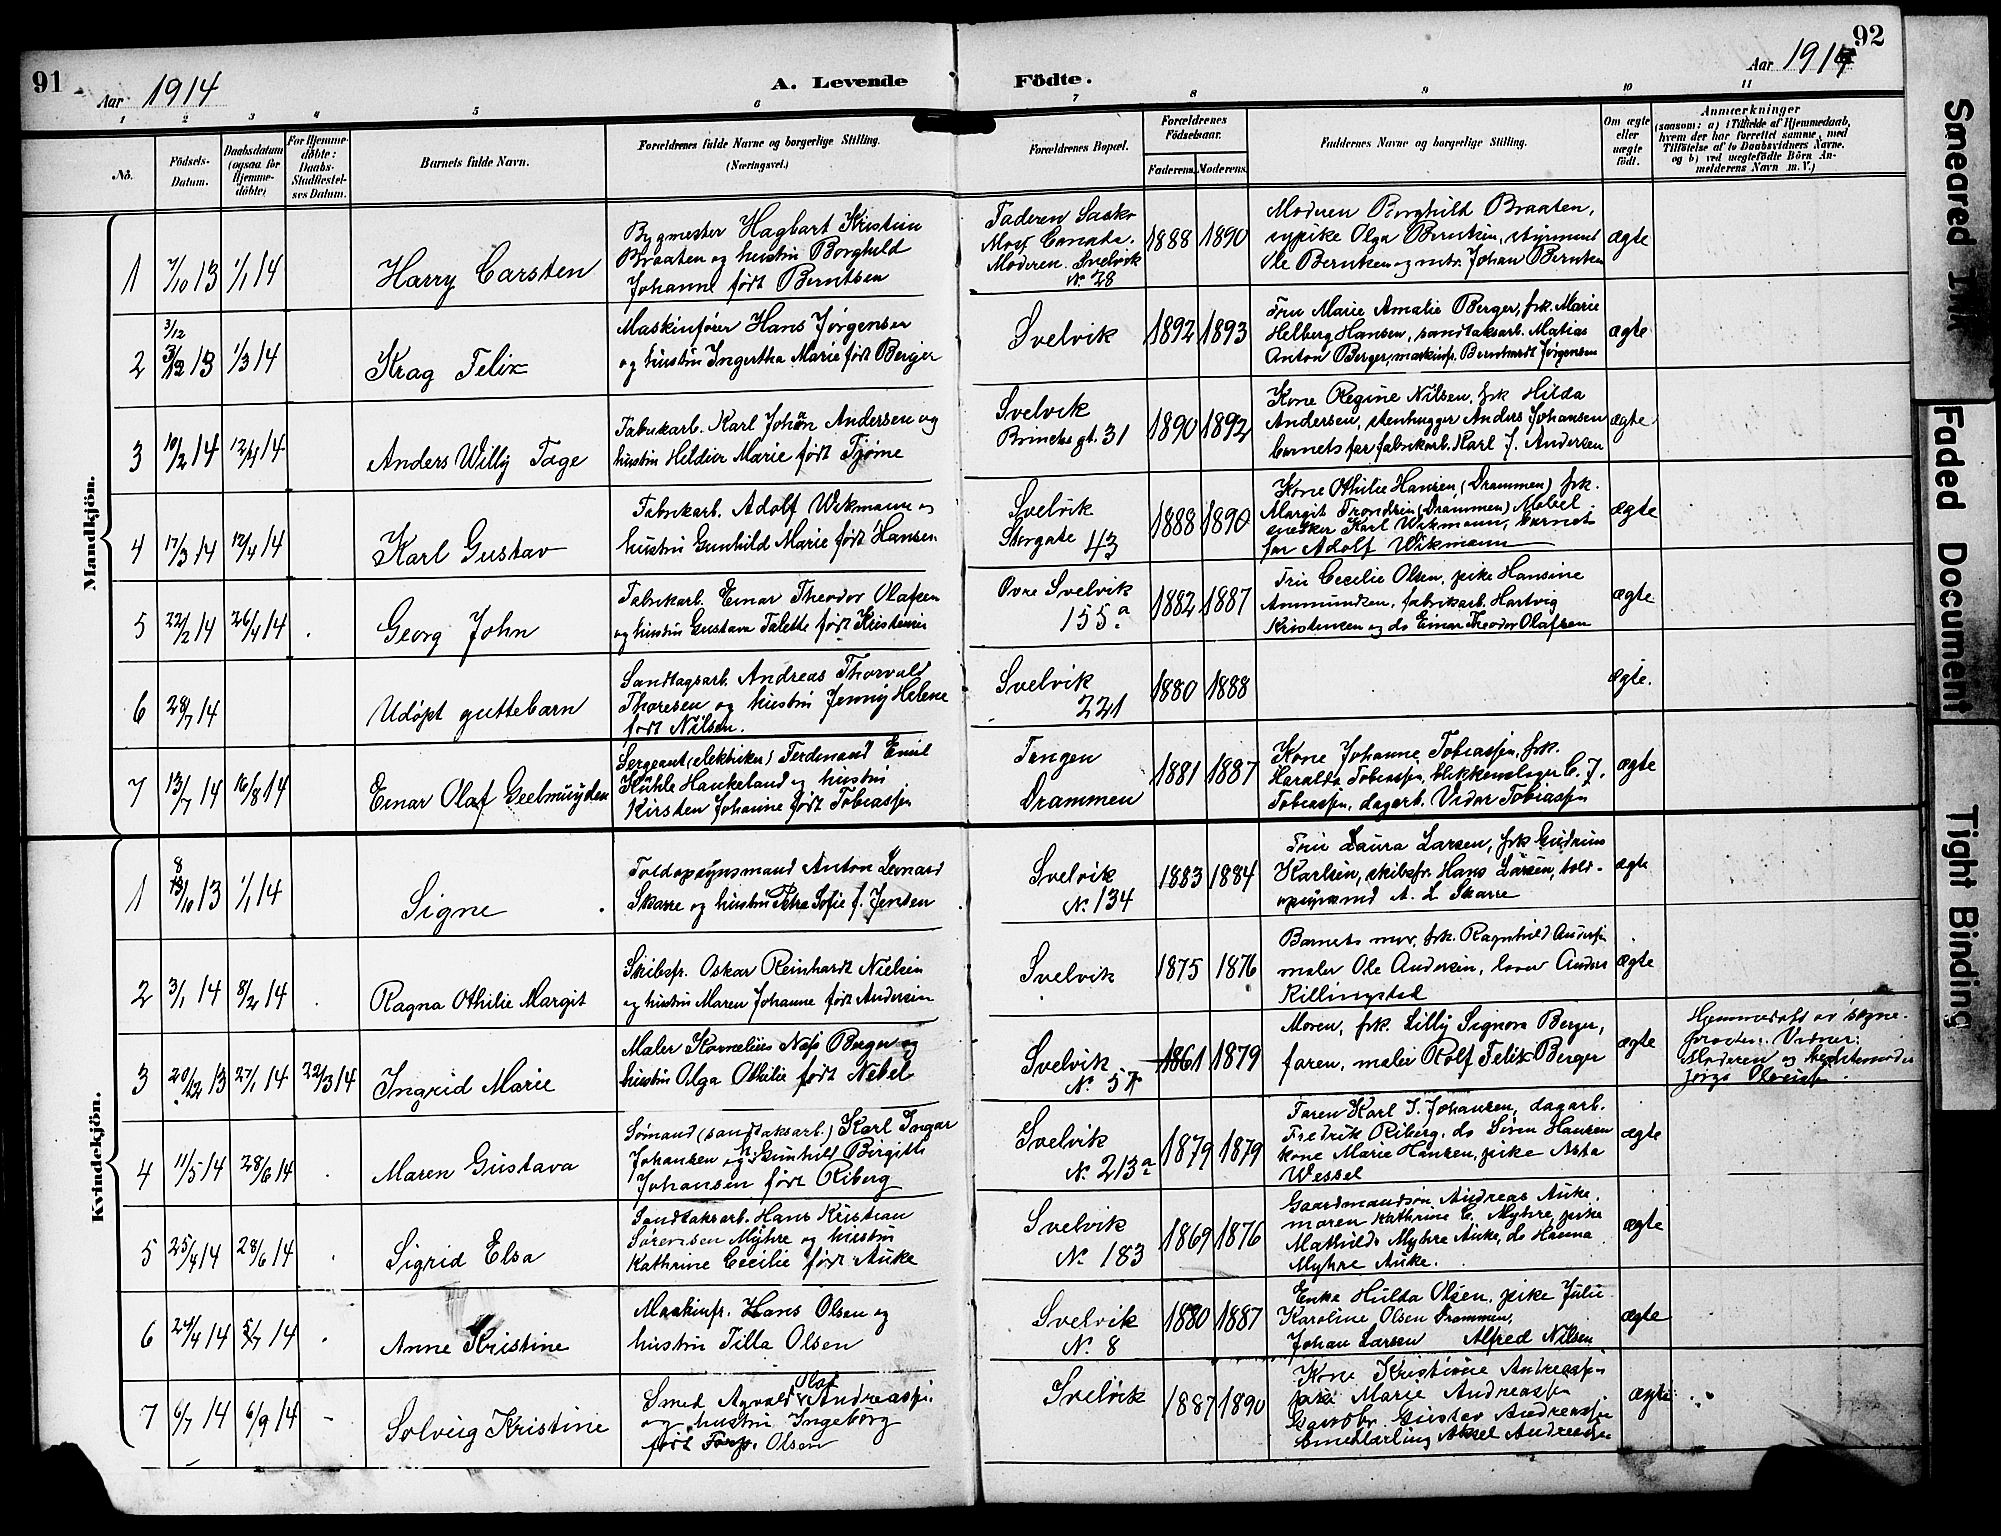 91
Aar 1914
A. Levende
Födte.
Aar 1914
92
1 2 3 4 5 6 7 8 9 10 11
No.
Födsels-Datum.
Daabsdatum (ogsaa for Hjemmedöbte)
For Hjemmedöbte: Daabs-Stadfæstelses Datum.
Barnets fulde Navn.
Forældrenes fulde Navne og borgerlige Stilling.
(Næringsvei.)
Forældrenes Bopæl.
Forældrenes Födselsaar.
Faderens. Moderens.
Faddernes Navne og borgerlige Stilling.
Om ægte eller uægte födt.
Anmærkninger
(saasom: a) i Tilfælde af Hjemmedaab, hvem der har forrettet samme, med Tilföielse af to Daabsvidners Navne, og b) ved uægtefödte Börn Anmelderens Navn m. V.)
Mandkjön.
1 7/10 13 1/1 14 Harry Carsten
Bygmester Hagbart Kristian
Braaten og hustru Borghild
Johanne født Berntsen
Faderen
Canada.
Moderen. Svelvik
No. 28
1888 1890
Moderen Borghild Braaten,
sypike Olga Berntsen, styrmand
Ole Berntsen og mtr. Johan Berntsen
ægte
2 3/12 3/12 13 1/3 14 Krag Felix
Maskinfører Hans Jørgensen
og hustru Ingertha Marie født Berger
Svelvik 1892 1893
Fru Marie Amalie Berger, frk. Marie
Helberg Hansen, sandtaksarb. Matias
Anton Berger, maskinfr. Bernhardt Jørgensen
ægte
3 10/2 14 12/4 14 Anders Willy Tage
Fabrikarb. Karl Johan Andersen og
hustru Heldier Marie født Tjøme
Svelvik
31
1890 1892
Kone Regine Nilsen, frk Hilda
Andersen, stenhugger Anders Johansen
barnets far fabrikarb. Karl J. Andersen
ægte
4 17/3 14 12/4 14 Karl Gustav
Fabrikarb. Adolf Wikmann og
hustru Gunhild Marie født Hansen
Svelvik
Storgate 43
1888 1890
Kone Othilie Hansen (Drammen) frk.
Margit Trondsen (Drammen) Møbel
snekker Karl Wikmann, barnets
far Adolf Wikmann
ægte
5 22/2 14 26/4 14 Georg John
Fabrikarb. Einar Theodor Olafsen
og hustru Gustava Talette født Kristensen
Øvre Svelvik
155a
1882 1887
Fru Cecilie Olsen, pike Hansine
Ammundsen, fabrikarb. Hartvig
Kristensen og do Einar Theodor Olafsen
ægte
6 28/7 14 Udøpt guttebarn
Sandtagsarb. Andreas Thorvald
Thoresen og hustru Jenny Helene
født Nilsen.
Svelvik
221
1880 1888 ægte.
7 13/7 14 16/8 14 Einar Olaf Geelmuyden
Sergeant (elektriker) Ferdinand Emil
Kühle Haukeland og hustru
Kirsten Johanne født Tobiassen
Tangen
Drammen
1881 1887
Kone Johanne Tobiassen, frk.
Haralda Tobiassen, blikkenslager C. J.
Tobiassen, dagarb. Vidar Tobiassen
ægte
Kvindekjön.
1 8 13/10 13 1/1 14 Signe
Toldopsynsmand Anton Leonard
Skarre og hustru Petra Sofie f. Jensen
Svelvik
No. 134
1883 1884
Fru Laura Larsen, frk Gudrun
Karlsen, skibsfr. Hans Larsen, told-
opsynsmd A. L. Skarre
ægte
2 3/1 14 8/2 14 Ragna Othilie Margit
Skibsfr. Oskar Reinhardt Nielsen
og hustru Maren Johanne født Andersen
Svelvik 1875 1876
Barnets mor, frk. Ragnhild Andersen
maler Ole Andersen, Anders
Killingstad
ægte
3 20/12 13 27/1 14 22/3 14 Ingrid Marie
Maler Kornelius Næs Berger og
hustru Olga Othilie født Nebel
Svelvik
No. 57
1861 1879
Moren, frk. Lilly Signora Berger,
faren, maler Rolf Felix Berger
ægte
Hjemmedøbt av sogne-
presten. Vidner:
Moderen og
4 11/5 14 28/6 14 Maren Gustava
Sømand (sandtaksarb.) Karl Ingar
Johansen og h. Gunhild Birgitte
Johansen født Riberg
Svelvik
No. 213a
1879 1879
Faren Karl I. Johansen, dagarb.
Fredrik Riberg, do Søren Hansen
kone Marie Hansen, pike Asta
Wessel
ægte
5 25/4 14 28/6 14 Sigrid Elsa
Sandtaksarb. Hans Kristian
Sørensen Myhre og hustru
Kathrine Cecilie født Auke
Svelvik
No. 183
1869 1876
Gaardmandsøn Andreas Auke,
moren Kathrine C. Myhre, pike
Mathilde Myhre Auke, do Hanna
Myhre Auke.
ægte
6 24/4 14 5/7 14 Anne Kristine
Maskinfr. Hans Olsen og
hustru Tilla Olsen
Svelvik
No. 8
1880 1887
Enke Hulda Olsen, pike Julie
Karoline Olsen Drammen,
Johan Larsen Alfred Nilsen
ægte
7 6/7 14 6/9 14 Solveig Kristine
Smed Agvald Olaf Andreassen
og hustru Ingeborg
født Olsen
Svelvik
1887 1890
Kone Kristine Andreassen
pike Marie Andreassen
Gustav Andreassen
Smedlærling Aksel Andreassen
ægte
Smeared Ink
Faded Document
Tight Binding